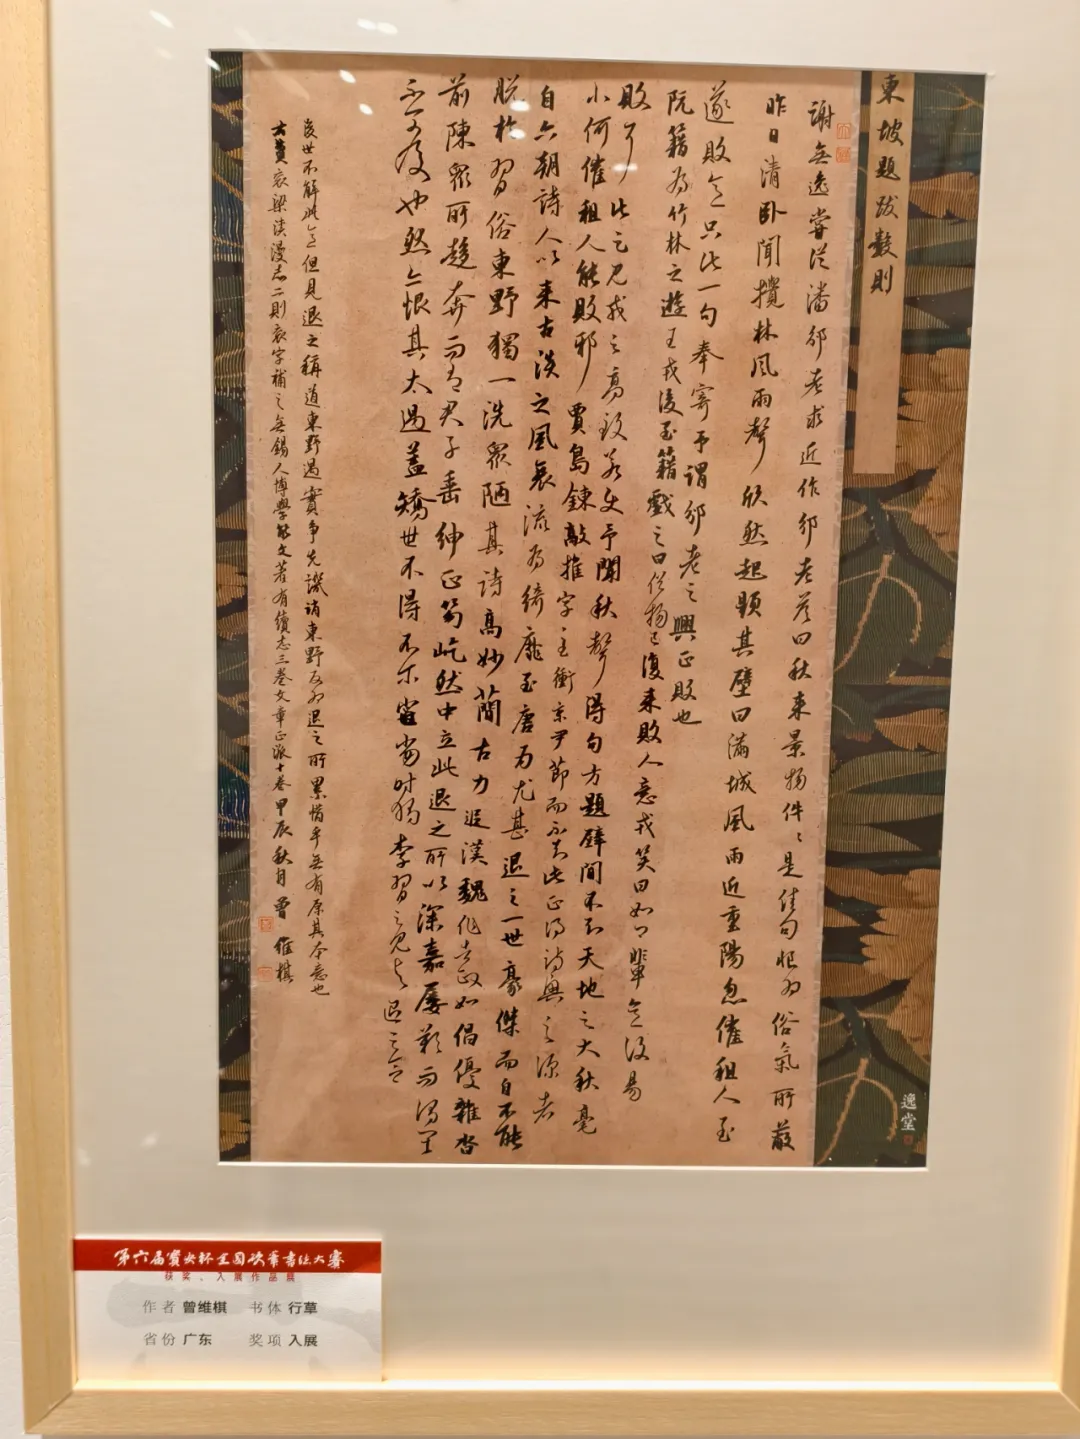 東坡題跋數則
謝無逸嘗從潘邠老求近作邠老答曰秋來景物件〻是佳句恨為俗氣所蔽
昨日清臥聞攪林風雨聲欣然起題其壁曰滿城風雨近重陽忽催租人至
遂敗意只此一句奉寄予謂邠老之興正敗也
阮籍為竹林之遊王戎後至籍戲之曰俗物已復來敗人意戎笑曰如卿輩意復易
敗耳此言見戎之高致若使予聞秋聲得句方題壁間不知天地之大秋毫
小何催租人能敗邪賈島鍊敲推字至衝京尹節而不知此正得詩興之深者
自六朝詩人以來古淡之風衰流為綺靡至唐為尤甚退之一世豪傑而自不能
脫於習俗東野獨一洗眾陋其詩高妙簡古力追漢魏作者政如倡優雜沓
前陳眾所趨奔而有君子垂紳正笏屹然中立此退之所以深嘉屢歎而謂
不可及也然亦恨其太過蓋矯世不得不爾當時獨李習之見與退之合
後世不解此意但見退之稱道東野過實爭先譏誚東野反為退之所累惜乎無有原其本意也
右費袞梁溪漫志二則袞字補之無錫人博學能文著有續志三卷文章正派十卷甲辰秋月曾維棋
逸堂
第六届宝安杯全国硬笔书法大赛
获奖、入展作品展
作者 曾维棋 书体 行草
省份 广东 奖项 入展